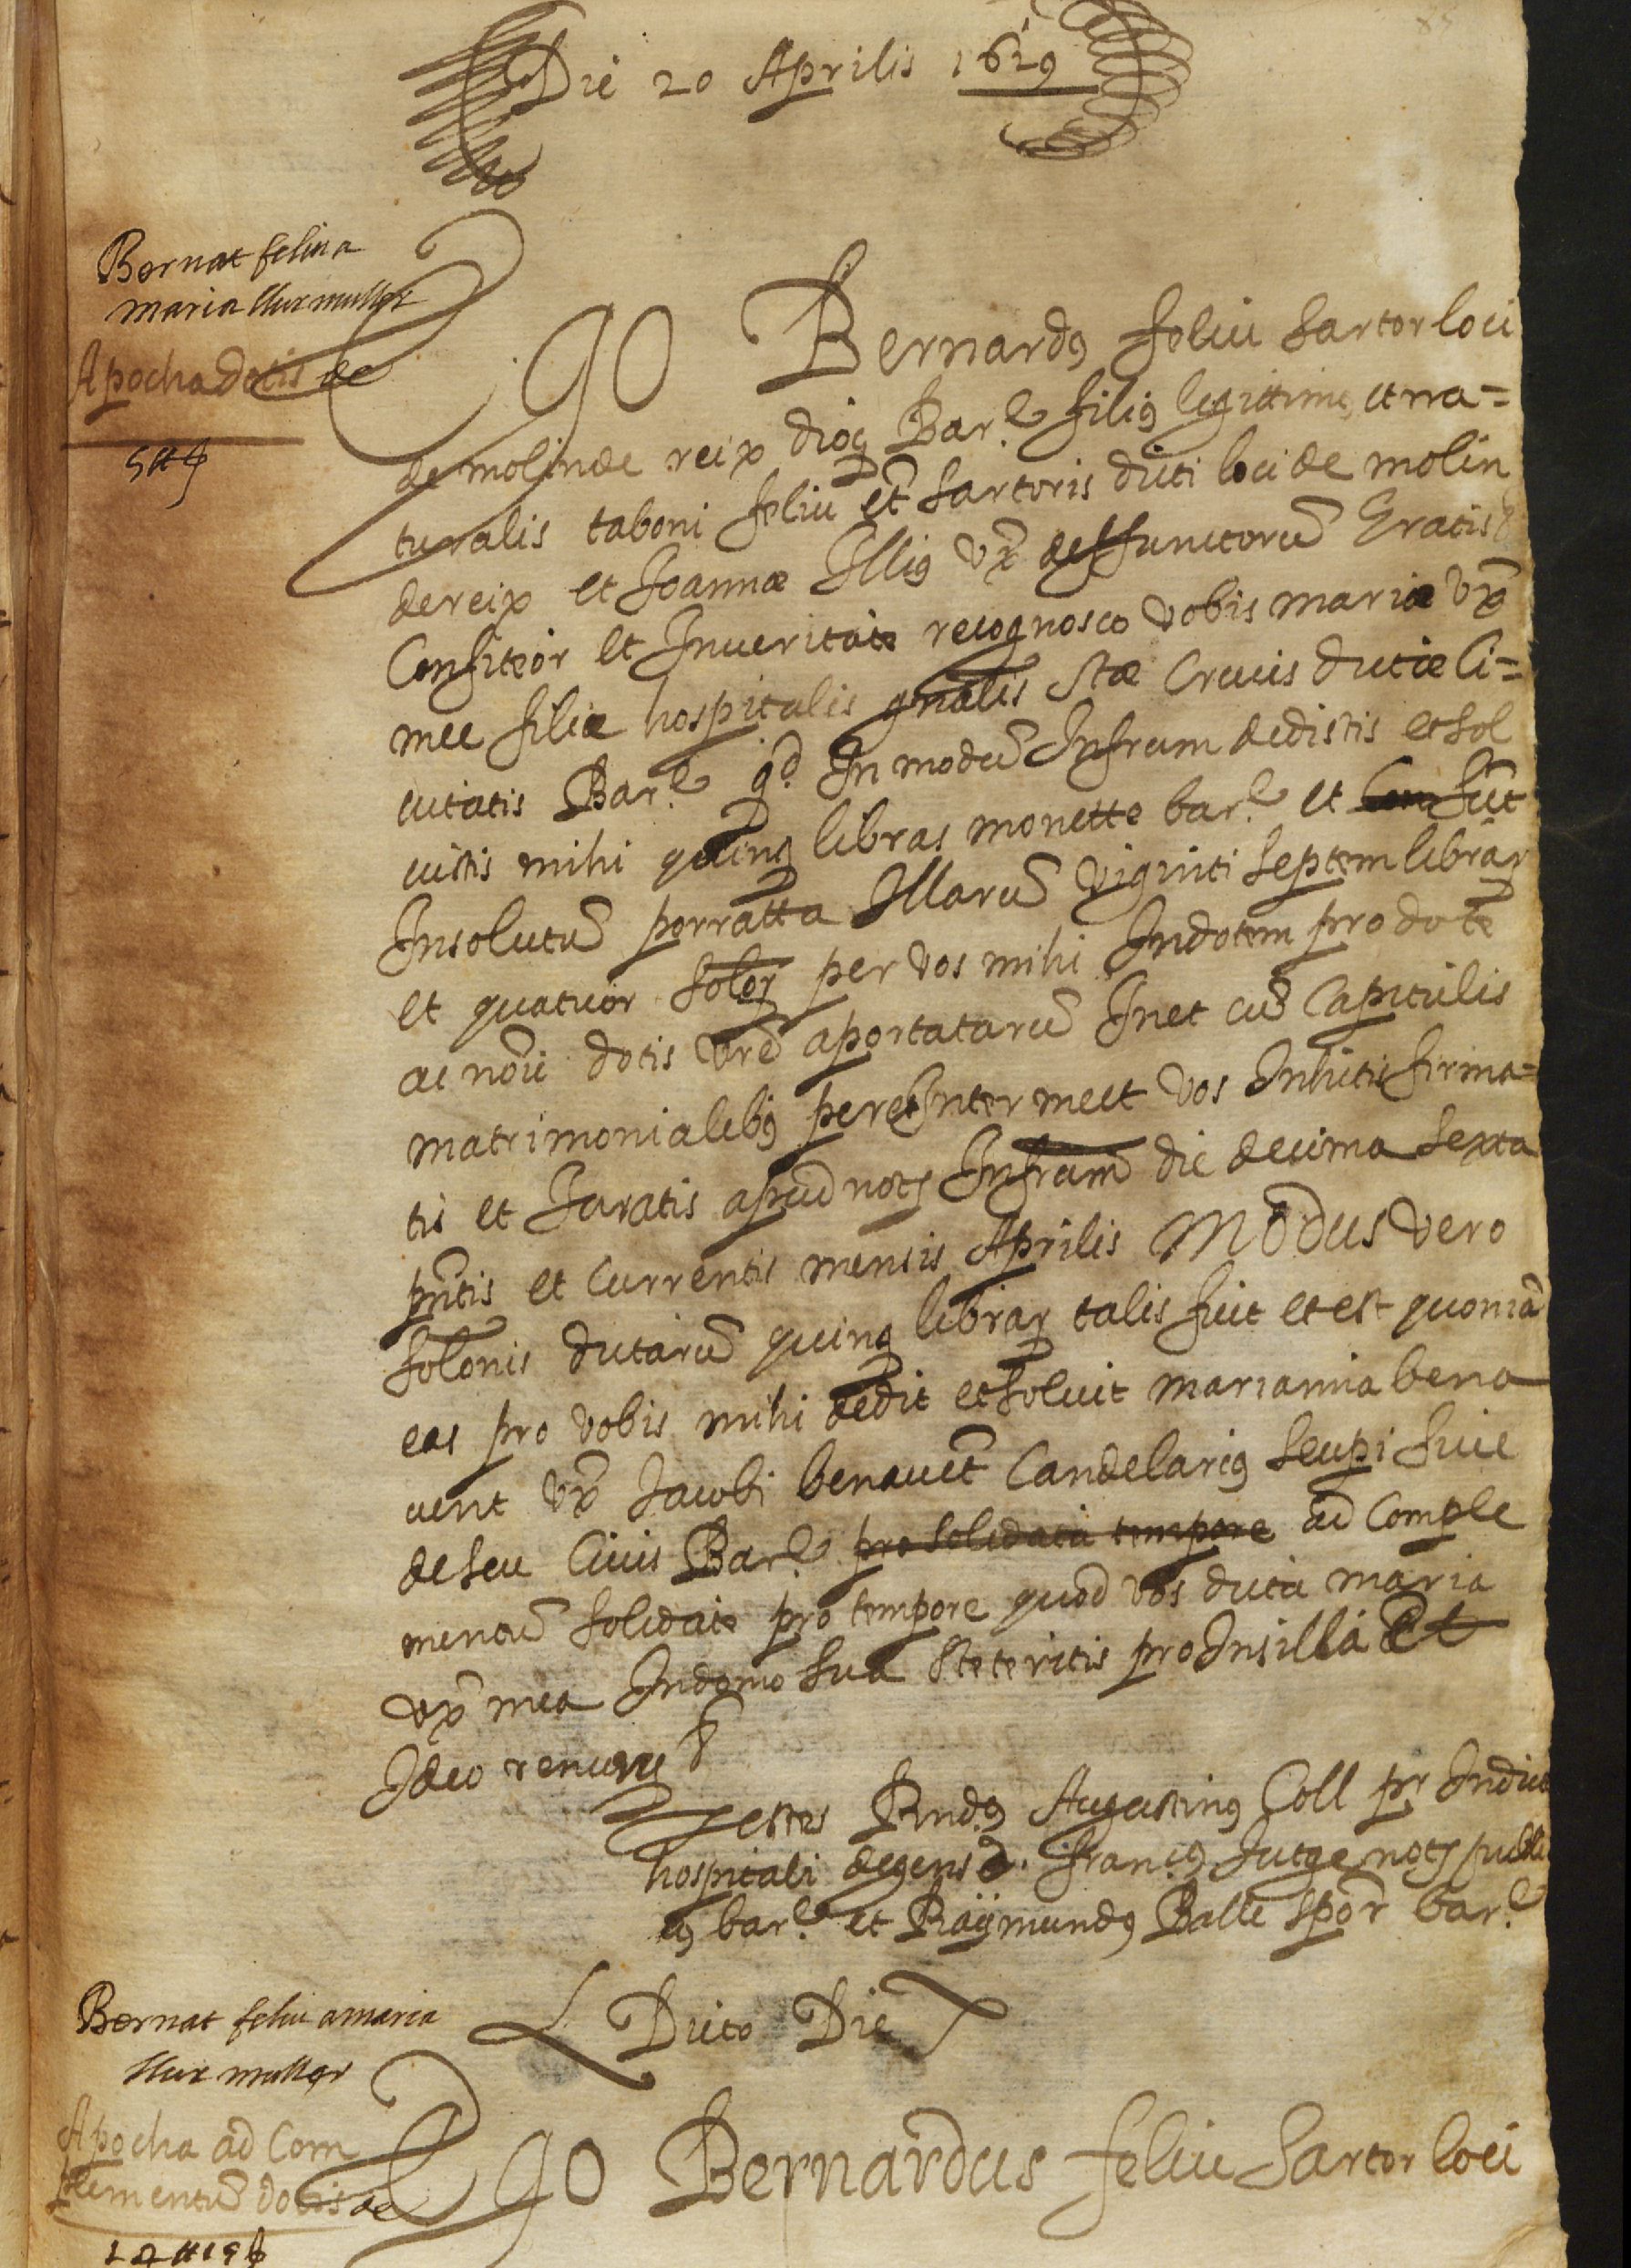 Die 20 Aprilis 1629
Bernat feliu a
maria llux muller
Apocha dotis de
5 ₶
Ego Bernardꝯ feliu sartor loci
de molin de reix dioꝯ Bar.ᵉ filiꝯ legittimꝯ et na=
turalis taboni feliu et̃ sartoris dicti loci de molin
de reix et Joannæ Illiꝯ vx̃ deffunctorũ Gratis &
Confiteor et In veritate recognosco vobis mariæ vx̃
mee filiæ hospitalis gñalis Stæ Crucis dictæ ci=
vitatis Bar.ᵉ qd In modũ Infrum dedistis et sol
vistis mihi quinqꝫ libras monette bar.ᵉ et sũt
In solutũ porratta Illarũ viginti septem librar
et quatuor solꝝ per vos mihi In dotem pro dote
ac nõie dotis vrẽ aportatarũ In et cũ Capitulis
matrimonialibꝯ per et Inter me et vos Inhitis firma=
tis et Juratis apud notꝫ Infram̃ die decima sexta
pñtis et Currentis mensis Aprilis Modus vero
solonis dictarũ quinqꝫ librar talis fuit et est quoniã
eas pro vobis mihi dedit et solvit marianna bena
vent vx̃ Jacobi benavẽt Candelariꝯ seupi sive
de seu Civis Bar.ᵉ pro soledata tempore ad Comple
mentũ soledate pro tempore quod vos dicta maria
vx̃ mea In domo sua steteritis pro In illa Et
Ideo renunꝯ &
Testes Rndꝯ Augustinꝯ Coll pr̃ In dicto
hospitali degens francꝯ Jutge notꝫ publi
cꝯ bar.ᵉ et Raÿmundꝯ Balle spor̃ bar.ᵉ
Dicto Die
Bernat feliu a maria
llux muller
Apocha ad Com
plementũ dotis de
Ego Bernardus feliu Sartor loci